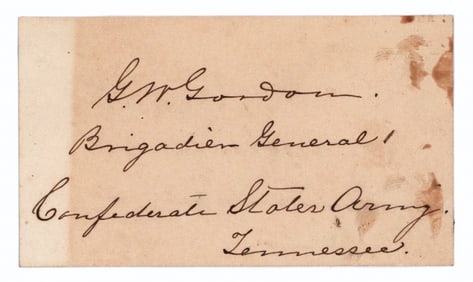 G.W. Gordon.
Brigadier General
Confederate States Army.
Tennessee.